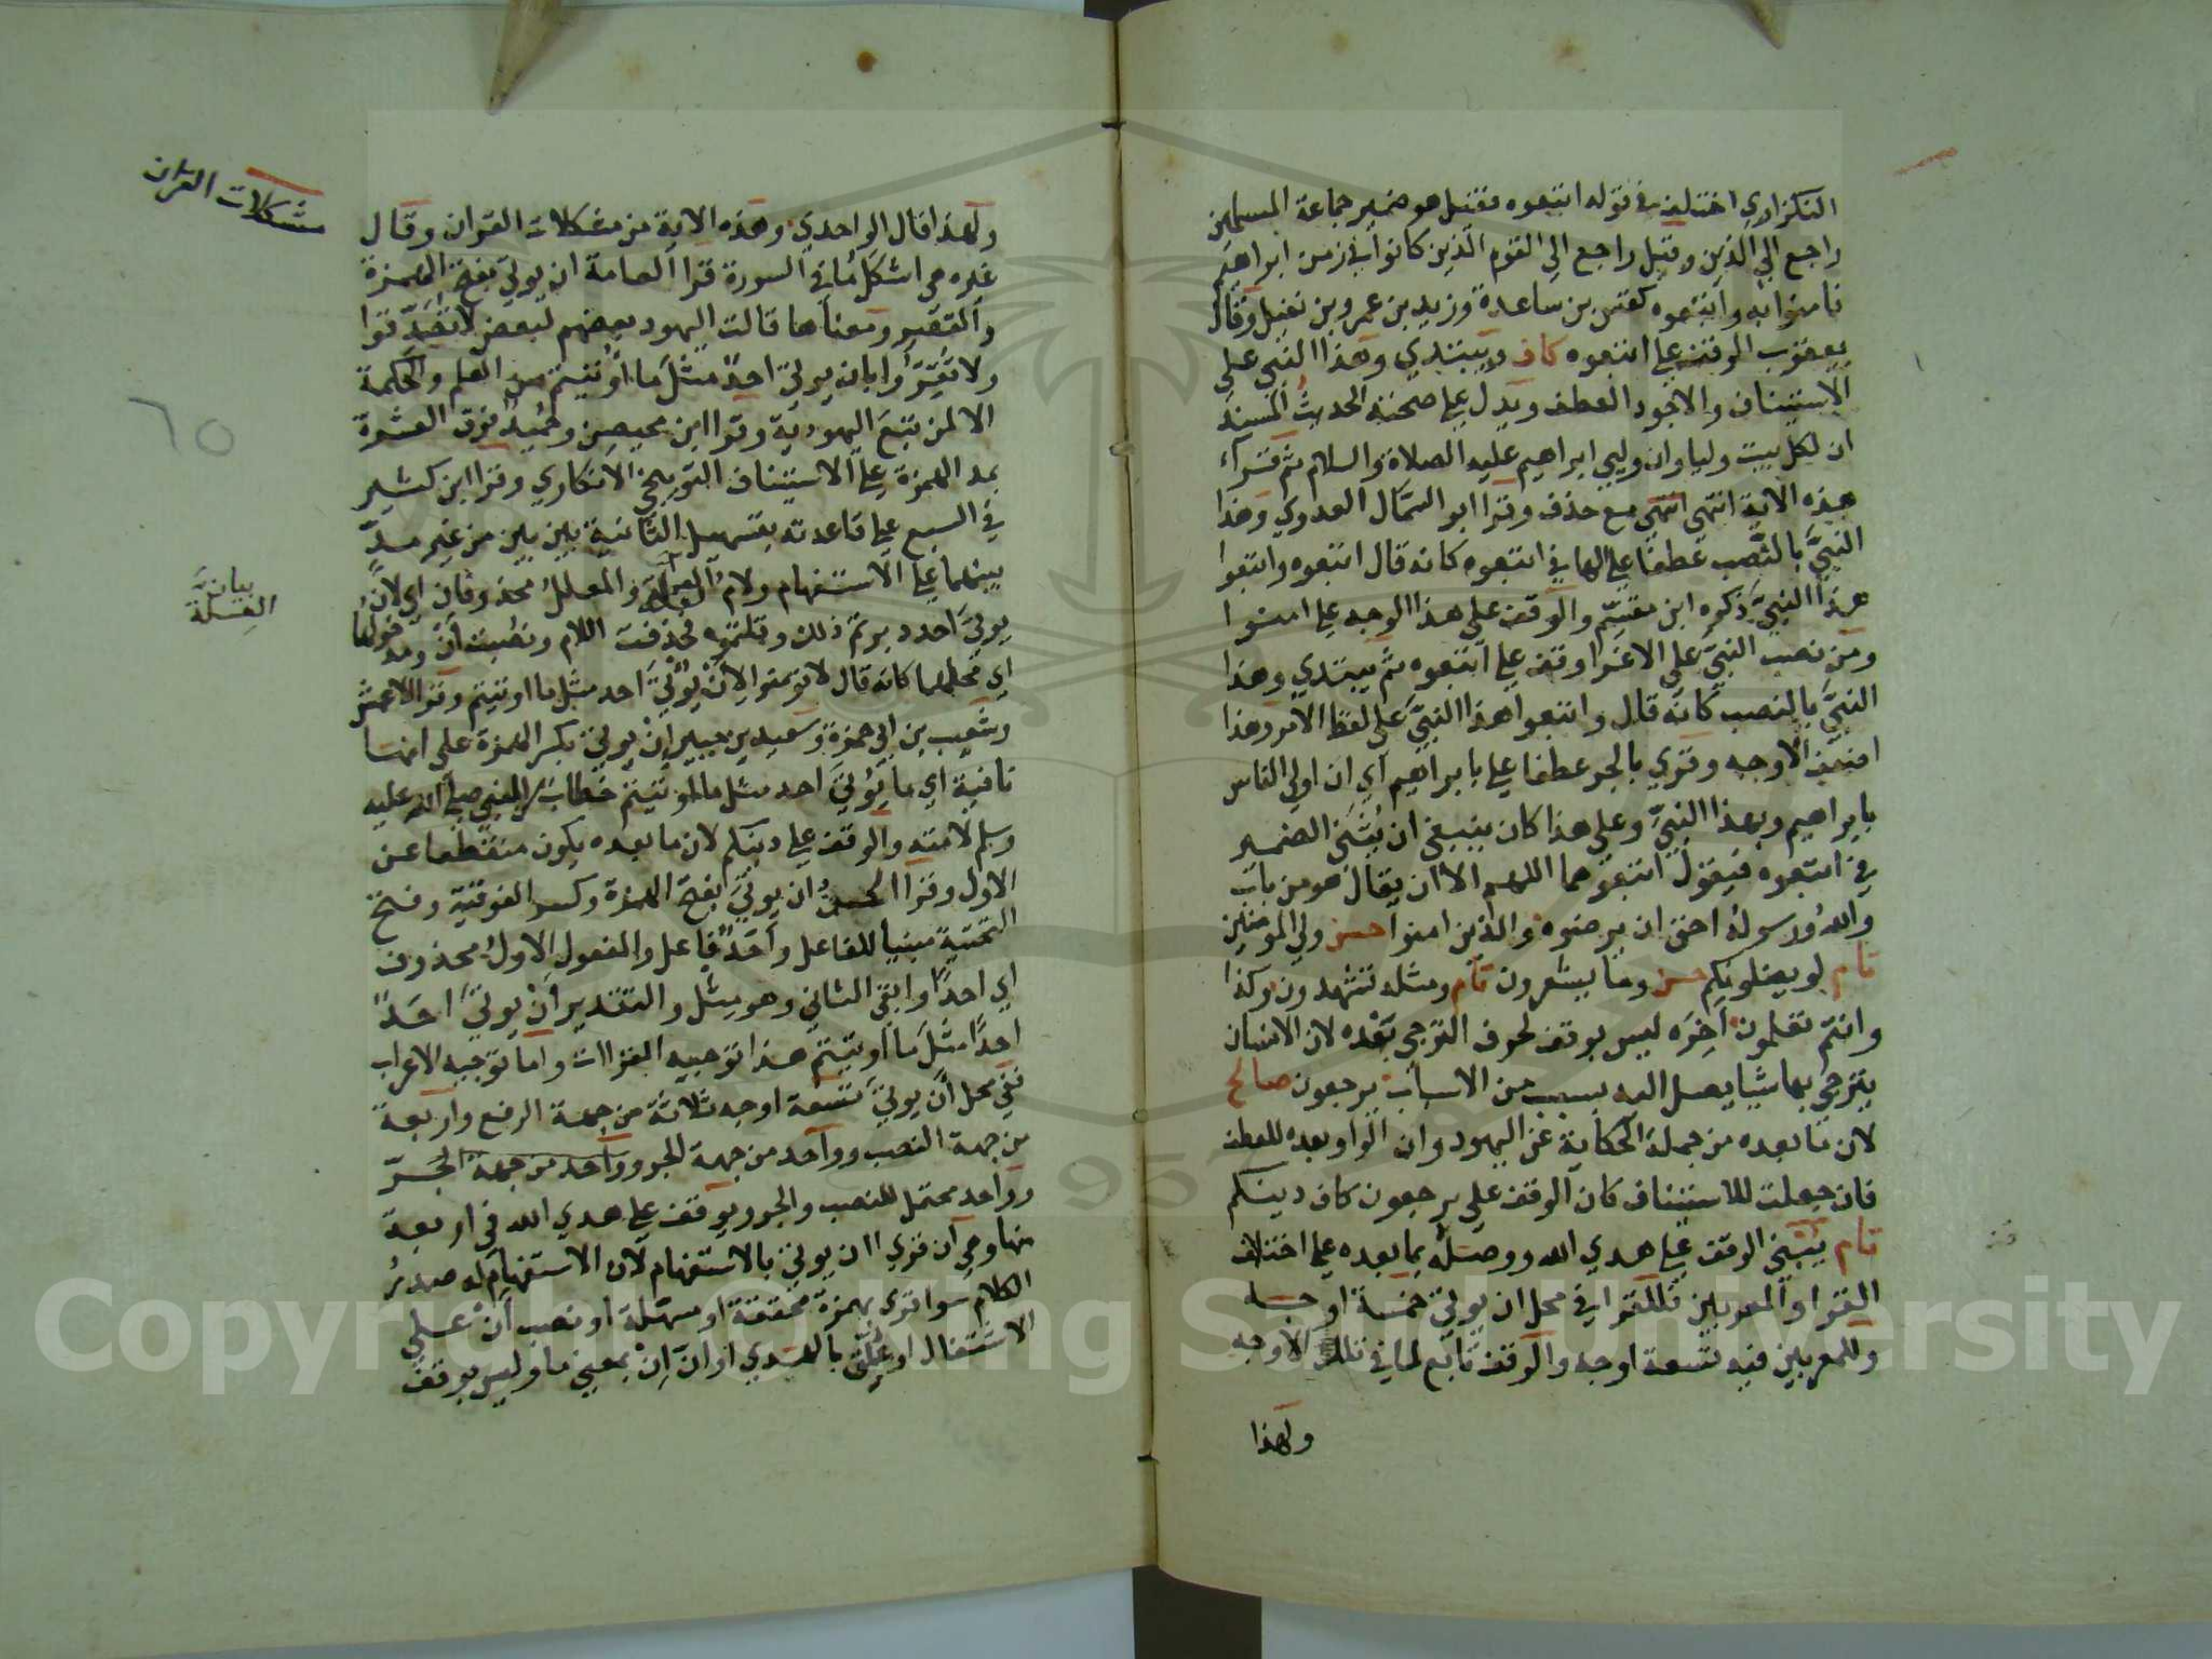 النكزاوي اختلف في قوله اتبعوه فقيل هو ضمير جماعة المسلمين
راجع الي الذين وقيل راجع الي القوم الذين كانوا في زمن ابراهيم
فامنوا به واتبعوه كقس بن ساعدة وزيد بن عمرو بن نفيل وقال
يعقوب الوقف علي اتبعوه كاف ويبتدي وهذا النبي علي
الاستيناف والاجود العطف ويدل علي صحته الحديث المسند
ان لكل بيت وليا وان وليي ابراهيم عليه الصلاة والسلام ثم قراء
هذه الاية انتهي انتهي مع حذف وقرا ابو السمال العدوي وهذا
النبيَّ بالنصب عطفا علي الها في اتبعوه كانه قال اتبعوه واتبعوا
هذا النبيَّ ذكره ابن مقسم والوقف علي هذا الوجه علي امنوا
ومن نصب النبيَّ علي الاغرا وقف علي اتبعوه ثم يبتدي وهذا
النبيَّ بالنصب كانه قال واتبعوا هذا النبيَّ علي لفظ الامر وهذا
اضعف الاوجه وقري بالجر عطفا علي بابراهيم اي ان اولي الناس
بابراهيم وبهذا النبيِّ وعلي هذا كان ينبغي ان يُثَنَّي الضمير
في اتبعوه فيقول اتبعوهما اللهم الا ان يقال هو من باب
والله ورسوله احق ان يرضوه والذين امنوا حسن ولي المومنين
تام لو يضلونكم حسن وما يشعرون تام ومثله تشهدون وكذا
وانتم تعلمون اخِرَه ليس بوقف لحرف الترجي بَعْده لان الانسان
يترجي بها شيا يصل اليه بسبب من الاسباب يرجعون صالح
لان ما بعده من جملة الحكاية عن اليهود وان الواو بعده للعطف
فان جعلت للاستيناف كان الوقف علي يرجعون كاف دينكم
تام يُنْبني الوقف علي هدي الله ووصله بما بعده علي اختلاف
القرا والمعربين فللقرا في محل ان يوتي خمسة اوجه
وللمعربين فيه تسعة اوجه والوقف تابع لها في تلك الاوجه
ولهذا
مشكلات القران
ولهذا قال الواحدي وهذه الاية من مشكلات القران وقال
غيره هي اشكل ما في السورة قرا العامة ان يوتي بفتح الهمزة
والقصر ومعناها قالت اليهود بعضهم لبعض لا تُصَدِّقوا
ولا تُقِرُّوا بان يوتي احدٌ مثلَ ما اوتيتم من العلم والحكمة
الا لمن تبع اليهودية وقرا ابن محيصن وحُميدٌ فوق العشرة
بمد الهمزة علي الاستيناف التوبيخي الانكاري وقرا ابن كثير
في السبع علي قاعدته بتسهيل الثانية بين بين من غير مدٍّ
بينهما علي الاستفهام ولام العلة والمعلل محذوفان اي لان
يوتي احد دبرتم ذلك وقلتموه فحذفت اللام ونصبت ان ومدخولها
اي محلهما كانه قال لا تومنوا لان يُوتَي احد مثل ما اوتيتم وقرا الاعمش
وشعيب بن ابي حمزة وسعيد بن جبير اِن يوتي بكسر الهمزة علي انها
نافية اي ما يُوتَي احد مثل ما اوتيتم خطاب من النبي صلي الله عليه
وسلم لامته والوقف علي دينكم لان ما بعده يكون منقطعا عن
الاول وقرا الحسن ان يوتِيَ بفتح الهمزة وكسر الفوقية وفتح
التحتية مبنيا للفاعل واَحَدٌ فاعل والمفعول الاول محذوف
اي احدًا وابقي الثاني وهو مثل والتقدير اَنْ يوتِيَ احَدٌ
احدًا مثلَ ما اوتيتم هذا توجيه القراات واما توجيه الاعراب
ففي محل اَن يوتي تسعة اوجه ثلاثة من جهة الرفع واربعة
من جهة النصب وواحد من جهة الجر وواحد من جهة الجَرّ
وواحد محتمل للنصب والجر ويوقف علي هدي الله في اربعة
منها وهي ان قري اان يوتي بالاستفهام لان الاستفهام له صدرُ
الكلام سوا قري بهمزة محققة او مسهلة او نصب اَنْ علي
الاشتغال او علق بالهدي او ان اِنْ بمعني ما وليس بوقف
بيانيَّ
العِلة
٦٥